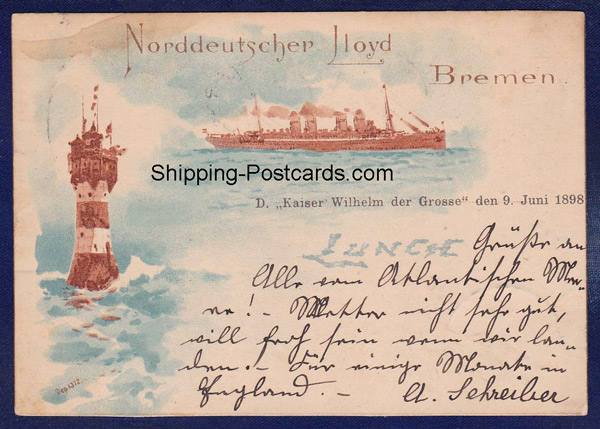 Norddeutscher Lloyd
Bremen.
Shipping-Postcards.com
D. „Kaiser Wilhelm der Grosse“ den 9. Juni 1898
LUNCH
Grüße an
Alle vom Atlantischen Mee-
re! - Wetter nicht sehr gut,
will froh sein wenn wir lan-
den. - Für einige Monate in
England. - A. Schreiber